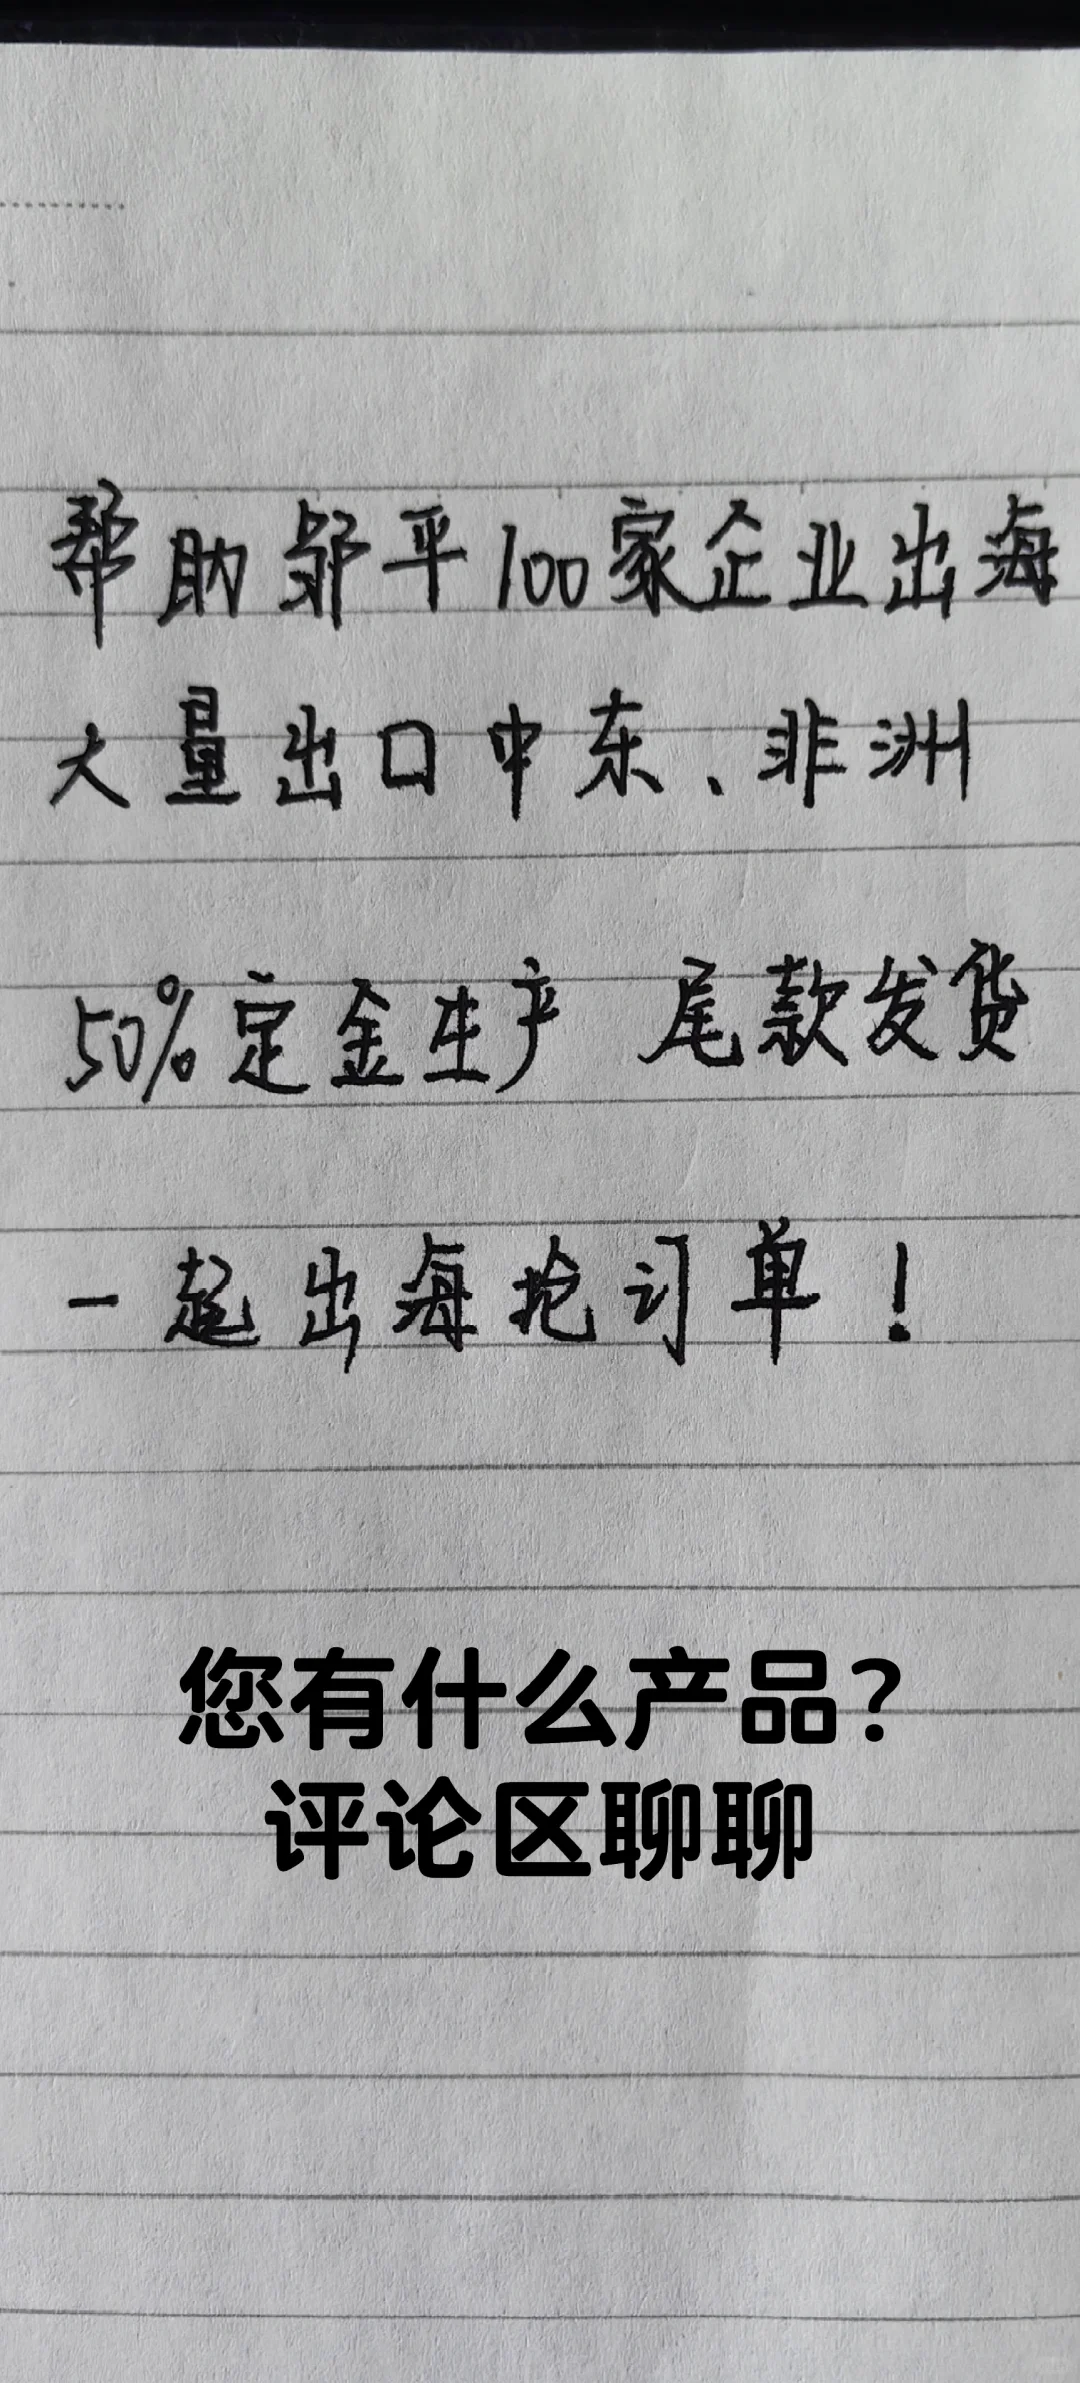 帮助邹平100家企业出海
大量出口中东、非洲
50%定金生产 尾款发货
一起出海抢订单！
您有什么产品？
评论区聊聊